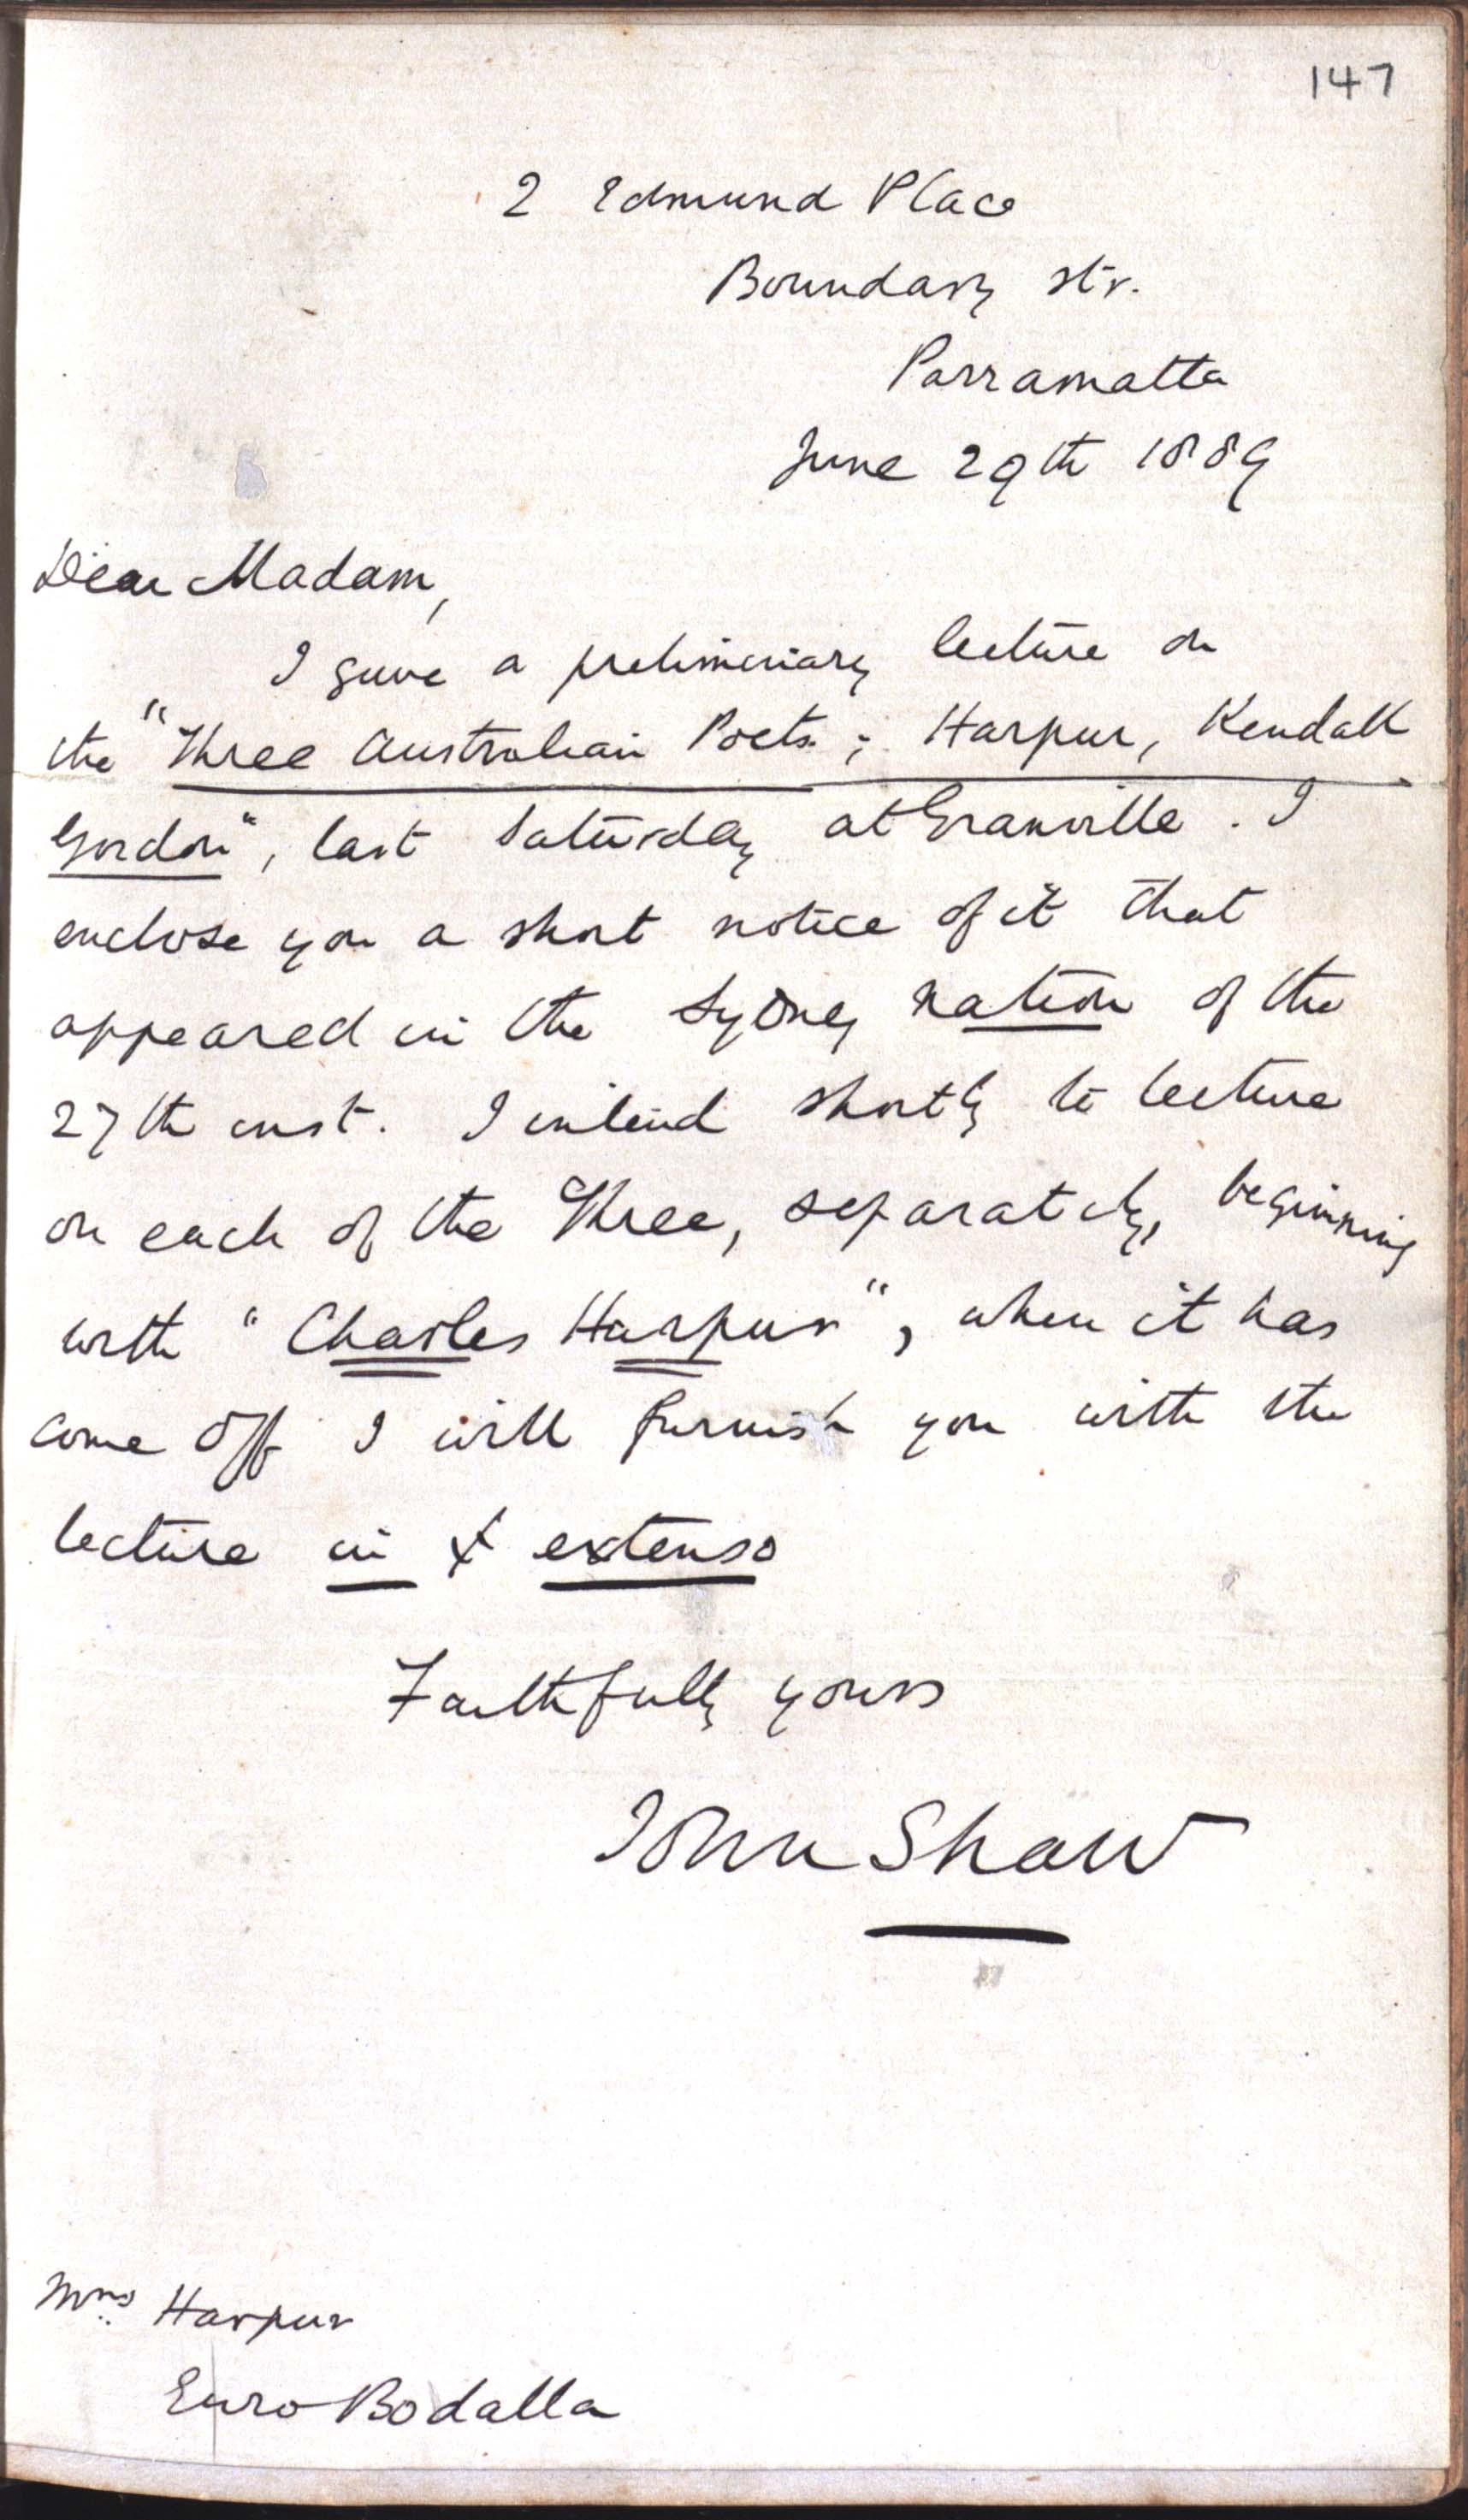 147
2 Edmund Place
Boundary str.
Parramatta
June 29th 1889
Dear Madam,
I gave a preliminary lecture on
the "Three Australian Poets; Harpur, Kendall
Gordon", last Saturday at Granville. I
enclose you a short notice of it that
appeared in the Sydney Nation of the
27th inst. I intend shortly to lecture
on each of the Three, separately, beginning
with "Charles Harpur", when it has
come off I will furnish you with the
lecture in extenso
Faithfully yours
John Shaw
Mrs Harpur
Euro-Bodalla